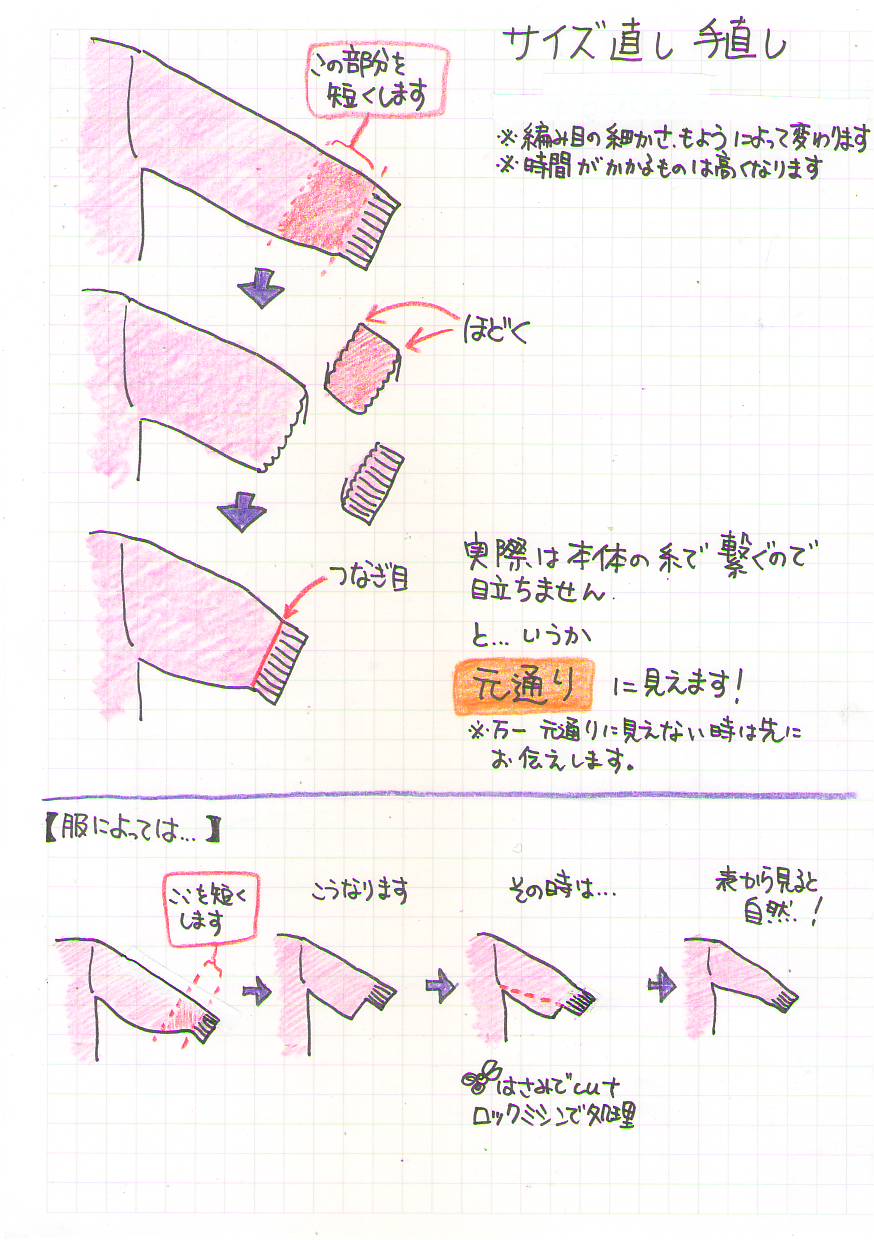 サイズ直し 手直し
この部分を
短くします
※編み目の細かさ、もようによって変わります
※時間がかかるものは高くなります
ほどく
つなぎ目
実際は本体の糸で繋ぐので
目立ちません.
と...いうか
元通り に見えます!
※万一 元通りに見えない時は先に
お伝えします。
【服によっては...】
ここを短く
します
こうなります
その時は...
表から見ると
自然..!
はさみでcut
ロックミシンで処理